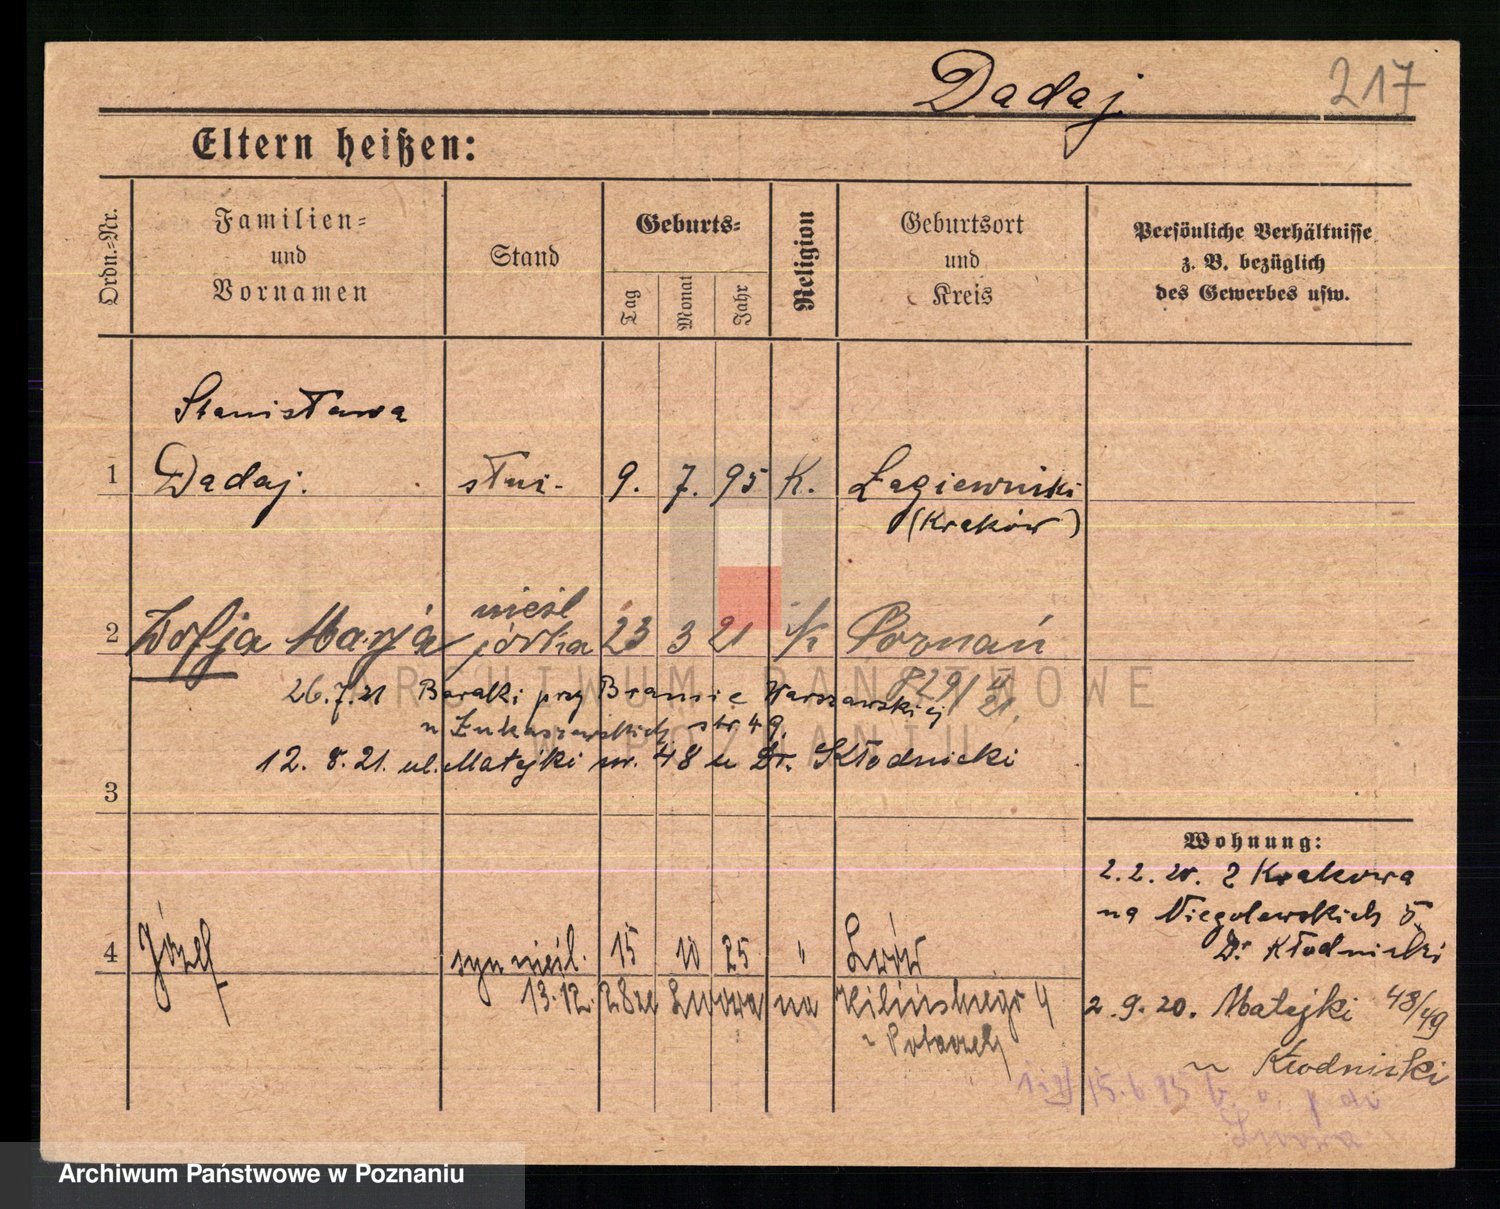 Dadaj 217
Eltern heißen:
Ordn.=Nr.
Familien=
und
Vornamen
Stand
Geburts=
Tag
Monat
Jahr
Religion
Geburtsort
und
Kreis
Persönliche Verhältnisse
z. B. bezüglich
des Gewerbes usw.
Stanisława
1 Dadaj. służ. 9. 7. 95 K. Łagiewniki
(Kraków)
2 Zofja Marja nieśl córka 23 3 21 K Poznań
26.7.21 Baraki przy Bramie Warszawskiej
u Łukaszewskich str 49.
12. 8. 21. ul. Matejki nr. 48 u Dr. Kłodnicki
3
Wohnung:
2. 2. 20. z Krakowa
na Niegolewskich 5
Dr Kłodnicki
4 Józef syn nieśl. 15 10 25 " Lwów
13.12. 28 ze Lwowa na Kilińskiego 4
2.9.20. Matejki 48/49
u Kłodnicki
15.6
Lwowa
ARCHIWUM PAŃSTWOWE
W POZNANIU
Archiwum Państwowe w Poznaniu